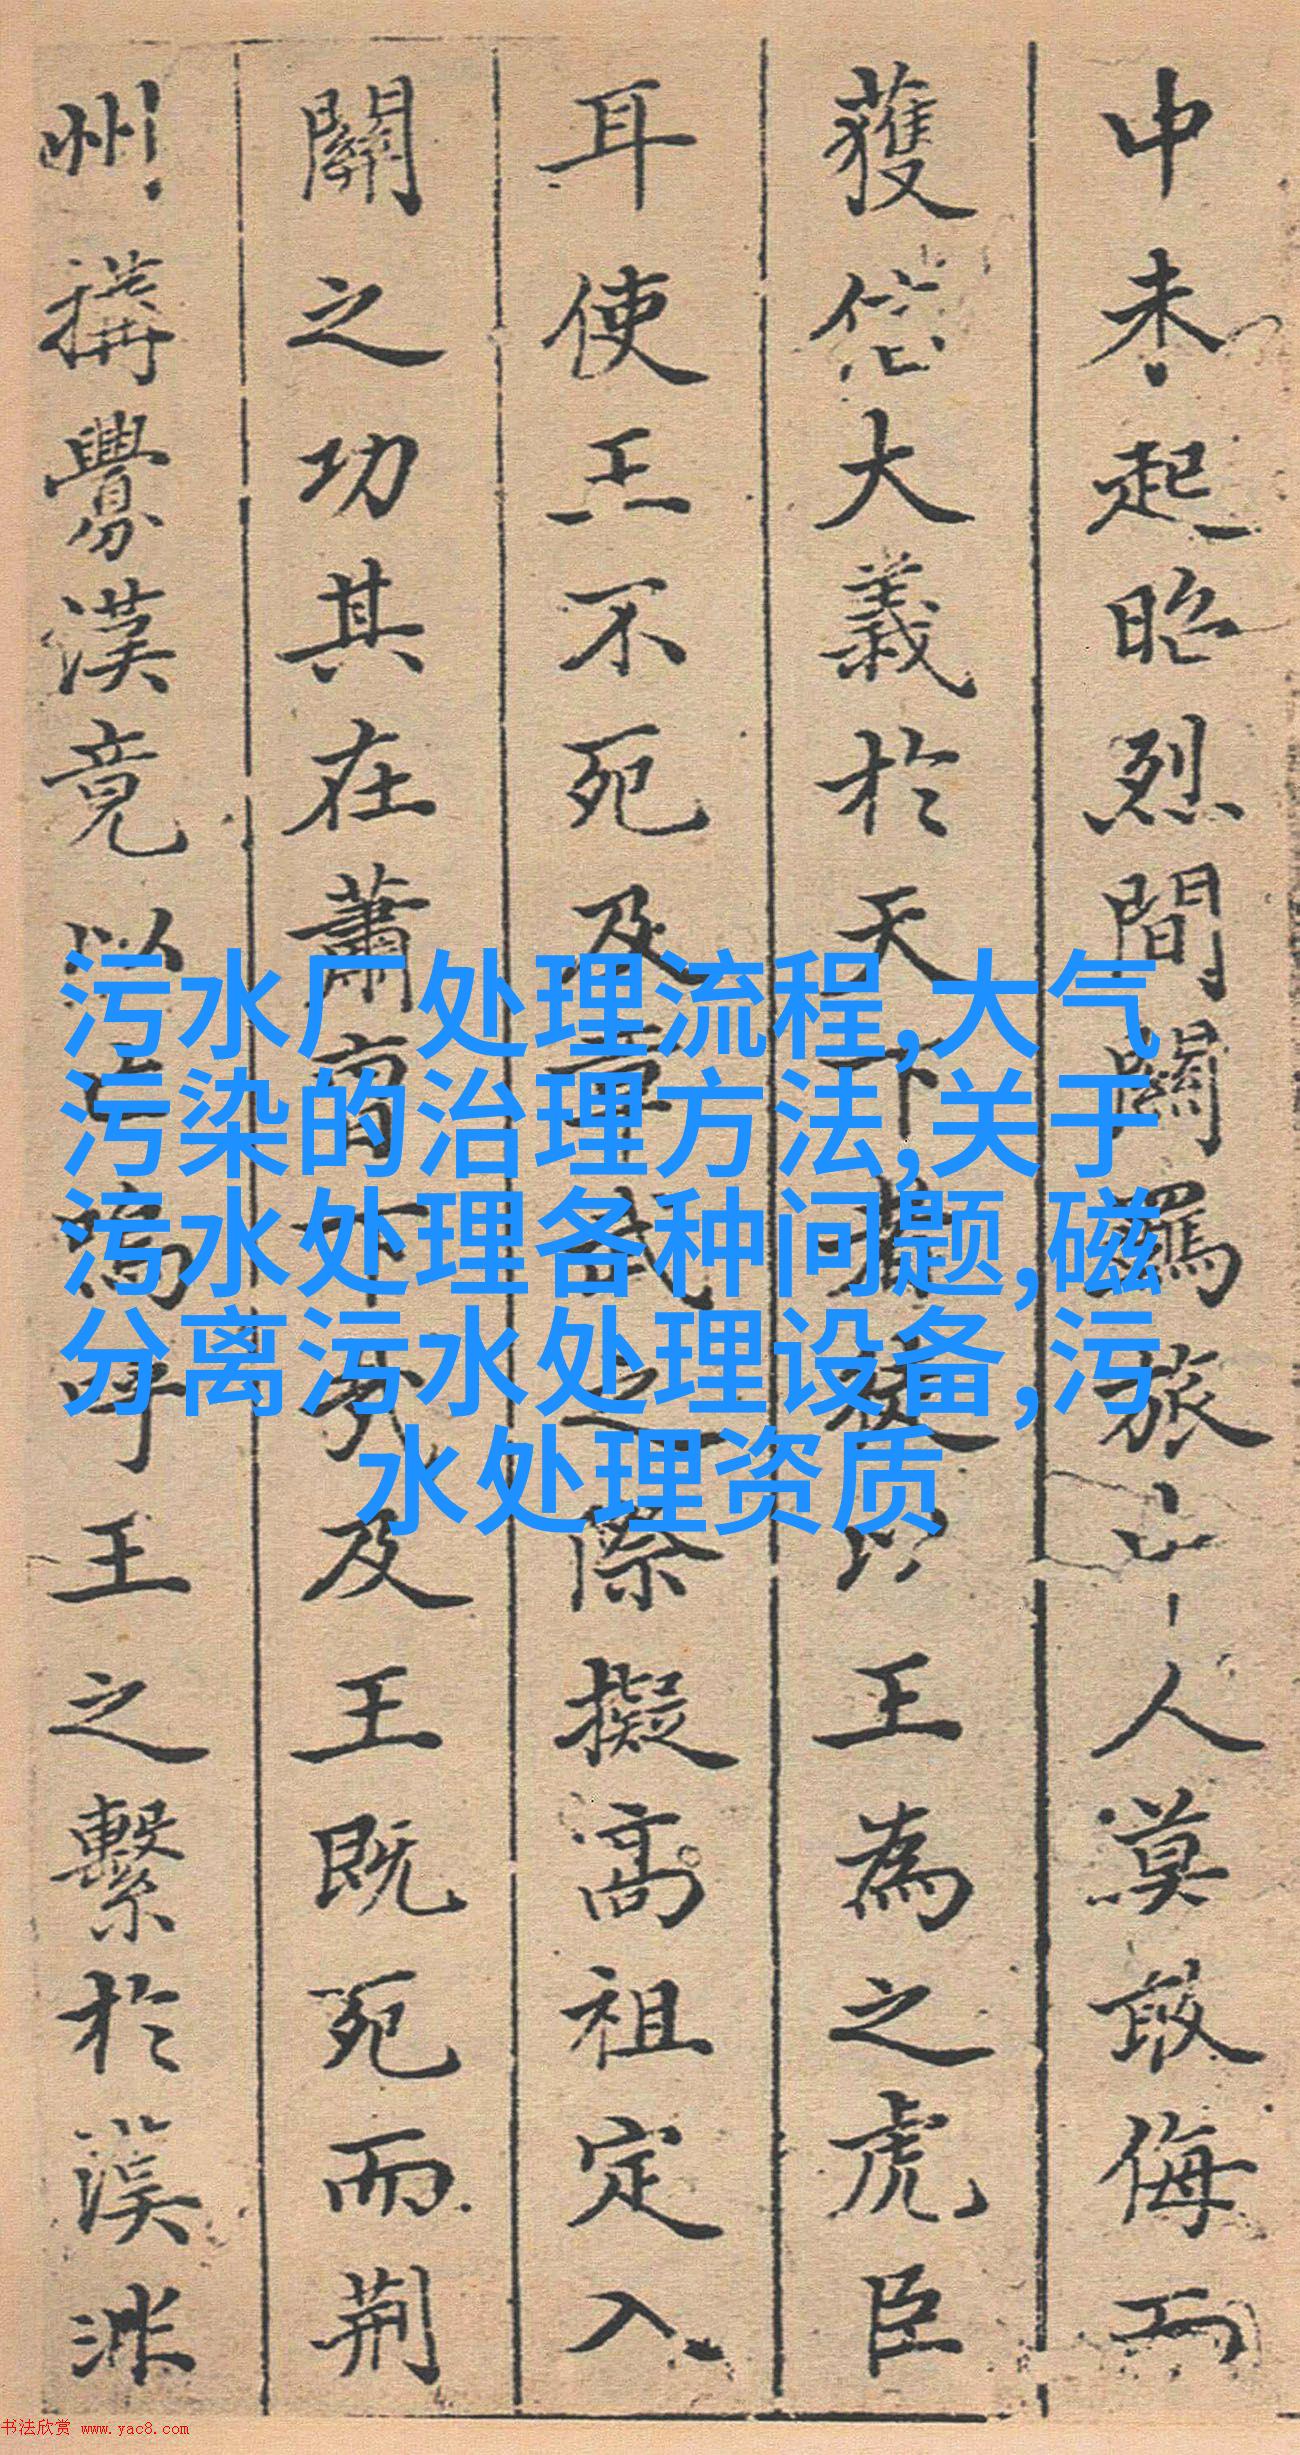 中未起昭烈間關羈旅人漠敢侮而
獲信大義於天下者徒以王為之虎臣
耳使王不死及章武之際擬高祖定入
關之功其在蕭曹下哉及王既死而荊
州搆釁漢竟以亡嗚呼王之繫於漢
污水厂处理流程,大气
污染的治理方法,关于
污水处理各种问题,磁
分离污水处理设备,污
水处理资质
书法欣赏 www.yac8.com